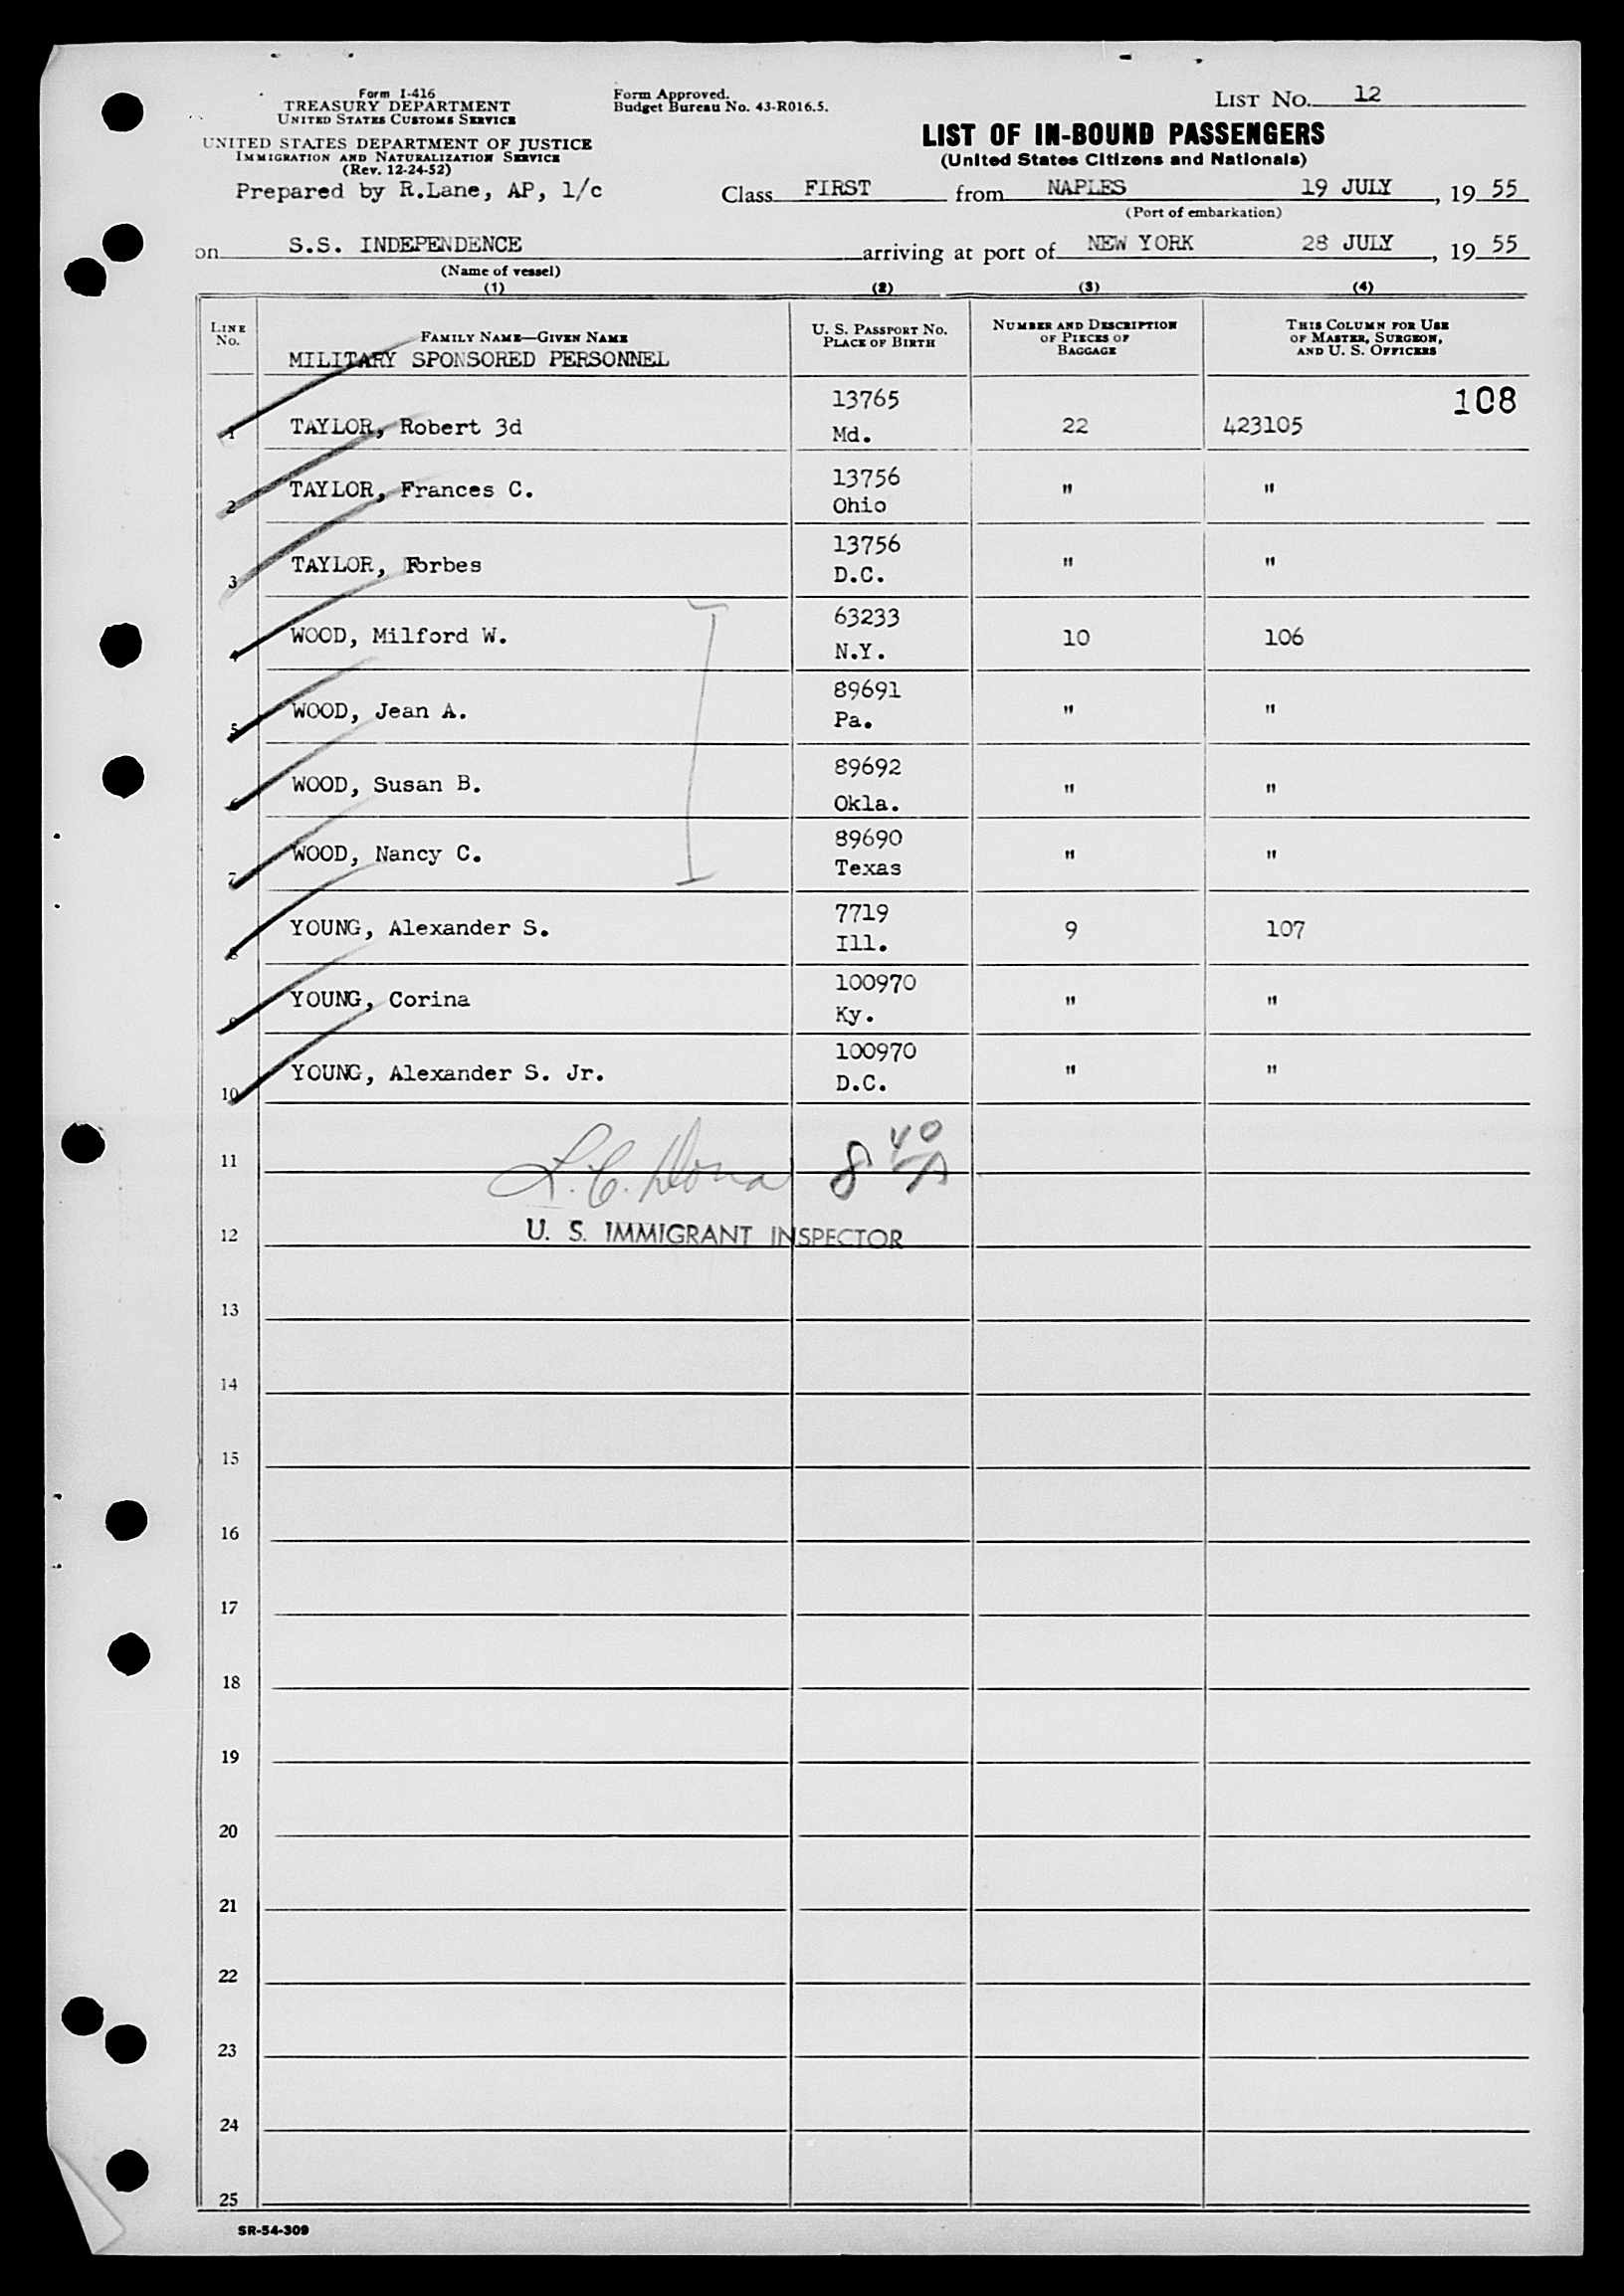 Form I-416
TREASURY DEPARTMENT
UNITED STATES CUSTOMS SERVICE
UNITED STATES DEPARTMENT OF JUSTICE
IMMIGRATION AND NATURALIZATION SERVICE
(Rev. 12-24-52)
Prepared by R.Lane, AP, 1/c
Form Approved.
Budget Bureau No. 43-R016.5.
LIST NO. 12
LIST OF IN-BOUND PASSENGERS
(United States Citizens and Nationals)
Class FIRST from NAPLES 19 JULY, 19 55
(Port of embarkation)
on S.S. INDEPENDENCE arriving at port of NEW YORK 28 JULY, 19 55
(Name of vessel)
(1) (2) (3) (4)
LINE NO. FAMILY NAME—GIVEN NAME U. S. PASSPORT NO. PLACE OF BIRTH NUMBER AND DESCRIPTION OF PIECES OF BAGGAGE THIS COLUMN FOR USE OF MASTER, SURGEON, AND U. S. OFFICERS
MILITARY SPONSORED PERSONNEL
108
1 TAYLOR, Robert 3d 13765 Md. 22 423105
2 TAYLOR, Frances C. 13756 Ohio " "
3 TAYLOR, Forbes 13756 D.C. " "
4 WOOD, Milford W. 63233 N.Y. 10 106
5 WOOD, Jean A. 89691 Pa. " "
6 WOOD, Susan B. 89692 Okla. " "
7 WOOD, Nancy C. 89690 Texas " "
8 YOUNG, Alexander S. 7719 Ill. 9 107
9 YOUNG, Corina 100970 Ky. " "
10 YOUNG, Alexander S. Jr. 100970 D.C. " "
11 8 40 A
12 U. S. IMMIGRANT INSPECTOR
13
14
15
16
17
18
19
20
21
22
23
24
25
SR-54-309